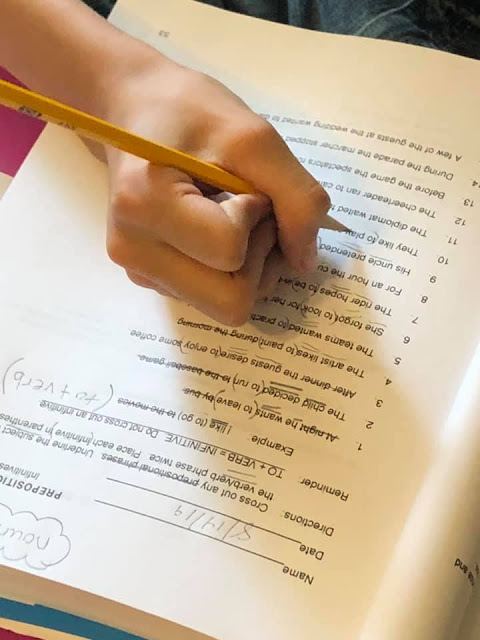 Name
Date 8/14/19
PREPOSITI
Infinitives
Directions: Cross out any prepositional phrases. Underline the subject
the verb/verb phrase twice. Place each infinitive in parentheses
Reminder: TO + VERB = INFINITIVE Do not cross out an infinitive.
Example: I like (to go) to the movies (to + verb)
noun
1. At night he wants (to leave) by bus.
2. The child decided (to run) to the baseball game.
3. After dinner the guests desire (to enjoy) some coffee
4. The artist likes (to paint) during the morning
5. The teams wanted to practi
6. She forgot (to look) for her
7. The rider hopes to be in
8. For an hour the cu
9. His uncle pretended
10. They like to play
11. The diplomat waited
12. The cheerleader ran to ca
13. Before the game the spectators
14. During the parade the marcher stopped
A few of the guests at the wedding wanted to
53
and